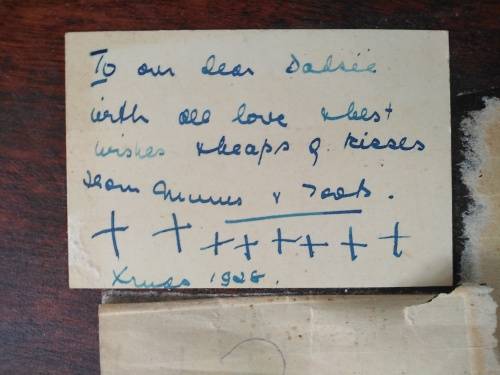 To our dear Dadsie
with all love & best
wishes & heaps of kisses
from Mums & Toots.
+ + + + + + + +
Xmas 1928.